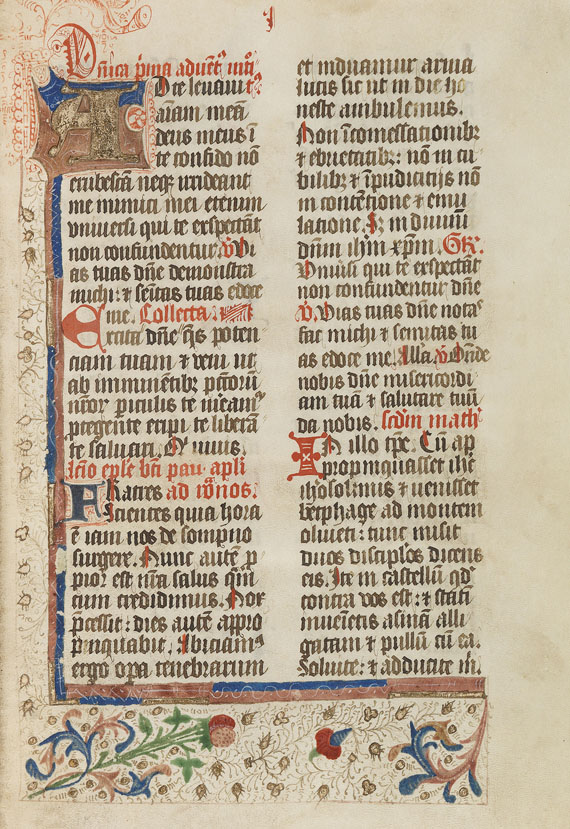 Dn̄ica p̄ma aduēt᷒ ītr̄
Ad te leuaui
aīam meā
deus meus ī
te confido nō
erubescā neqꝫ irrideant
me inimici mei etenim
vniuersi qui te exspectāt
non confundentur. v̄ Vi
as tuas dn̄e demonstra
michi: ⁊ sēitas tuas edoce
me. Collecta.
Excita dn̄e q̄s poten
ciam tuam ⁊ veni ut
ab imminētibꝫ pctōrū
nr̄oꝝ ꝑiculis te meam᷒
ꝓtegente eripi te liberā
te saluari. Qui viuis.
lc̄io eple bt̄i pau apl̄i
Fratres ad ro᷒nos.
Scientes quia hora
ē iam nos de sompno
surgere. Nunc autē ꝓ
pior est nr̄a salus q̄m
cum credidimus. Nox
p̄cessit: dies autē appro
pinquabit. Abiciam᷒
ergo oꝑa tenebrarum
et induamur arma
lucis sic ut in die ho
neste ambulemus.
Non ī comessationibꝫ
⁊ ebrietatibꝫ: nō in cu
bilibꝫ ⁊ īpudicitijs nō
in contētione ⁊ emu
latione. Sꝫ induimī
dn̄um ih̄m xp̄m. Gr̄.
Vniūsi qui te exspectāt
non confundentur dn̄e
v̄. Vias tuas dn̄e notas
fac michi ⁊ semitas tu
as edoce me. Alla v̄ Oñde
nobis dn̄e misericordi
am tuā ⁊ salutare tuū
da nobis. scdm math
In illo tp̄e. Cū ap
propinquasset ih̄c
iherosolimis ⁊ venisset
bethphage ad montem
oliueti: tunc misit
duos disciplōs dicens
eis. Ite in castellū qd̄
contra vos est: ⁊ stati
inuenietis asinā alli
gatam ⁊ pullū cū ea.
Soluite: ⁊ adducite m̄.